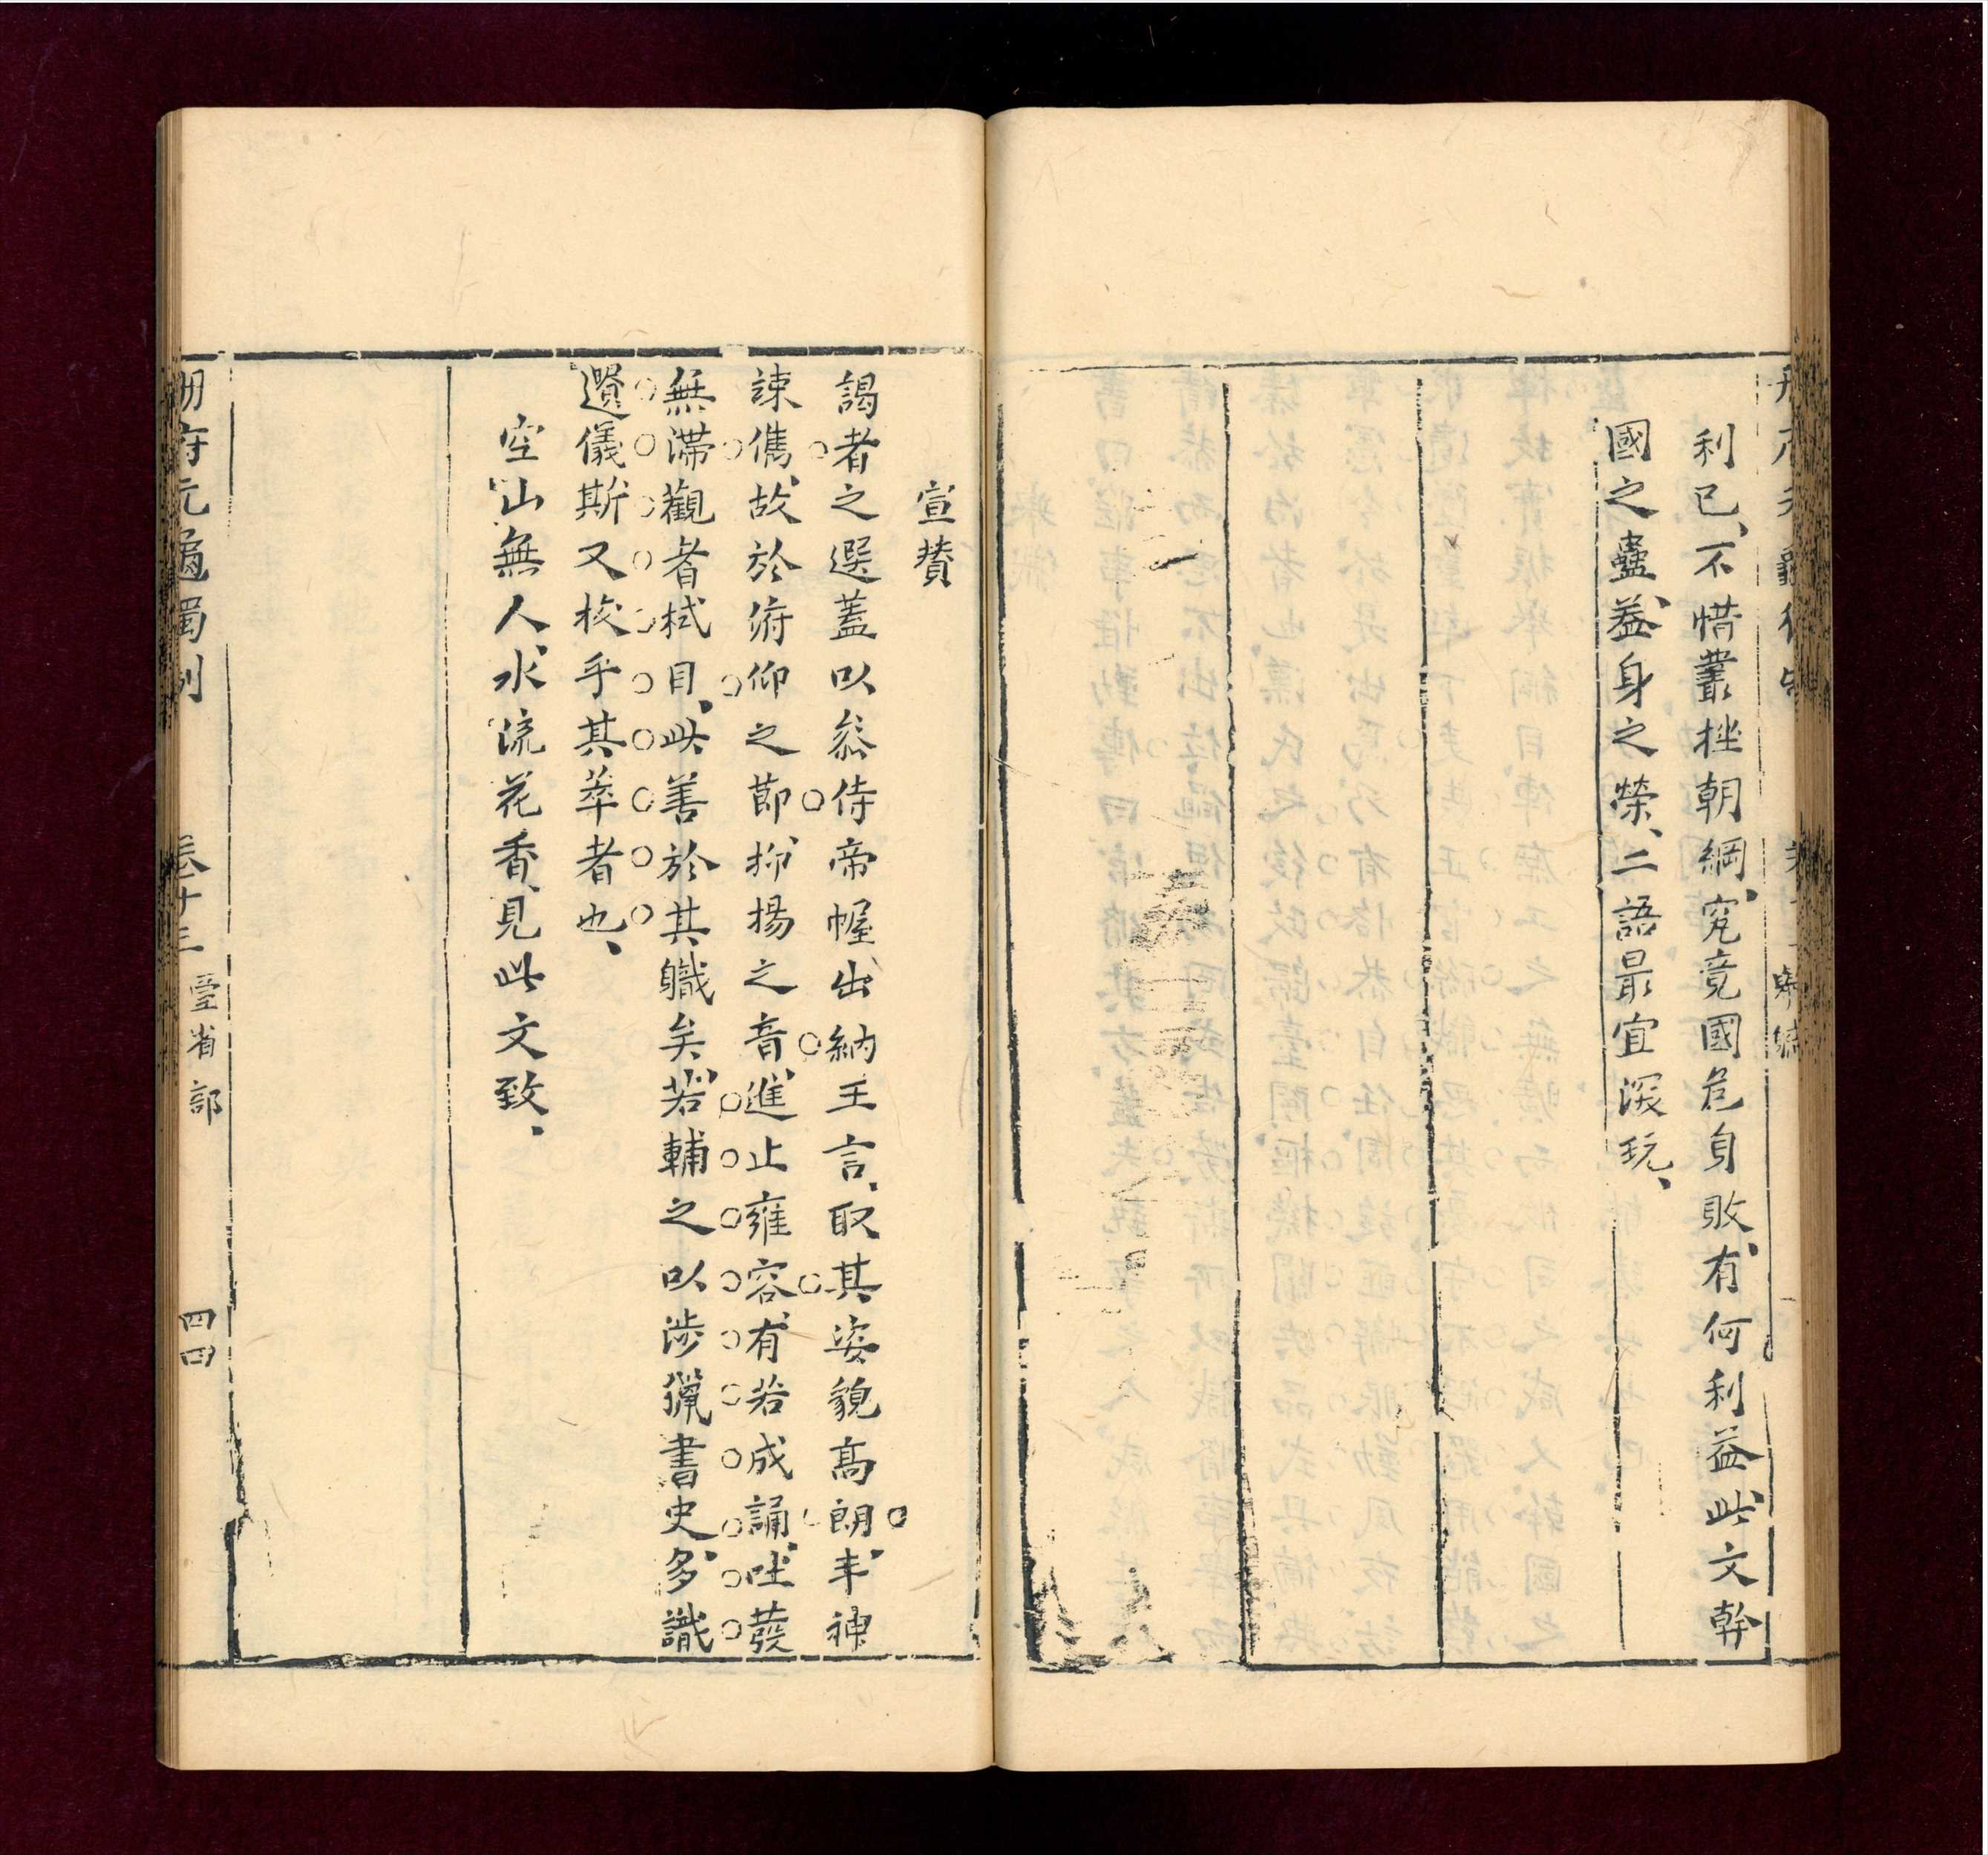 利已、不惜叢挫朝綱、究竟國危身敗、有何利益、此文幹
國之蠱、益身之榮、二語最宜深玩、
宣贊
謁者之選蓋以叅侍帝幄、出納王言、取其姿貌高朗、丰神
諫儁、故於俯仰之節、抑揚之音、進止雍容、有若成誦、吐發
無滯、觀者拭目、此善於其職矣、若輔之以涉獵書史、多識
遺儀、斯又核乎其萃者也、
空山無人、水流花香、見此文致、
册府元龜獨制
卷十三
臺省部
四四